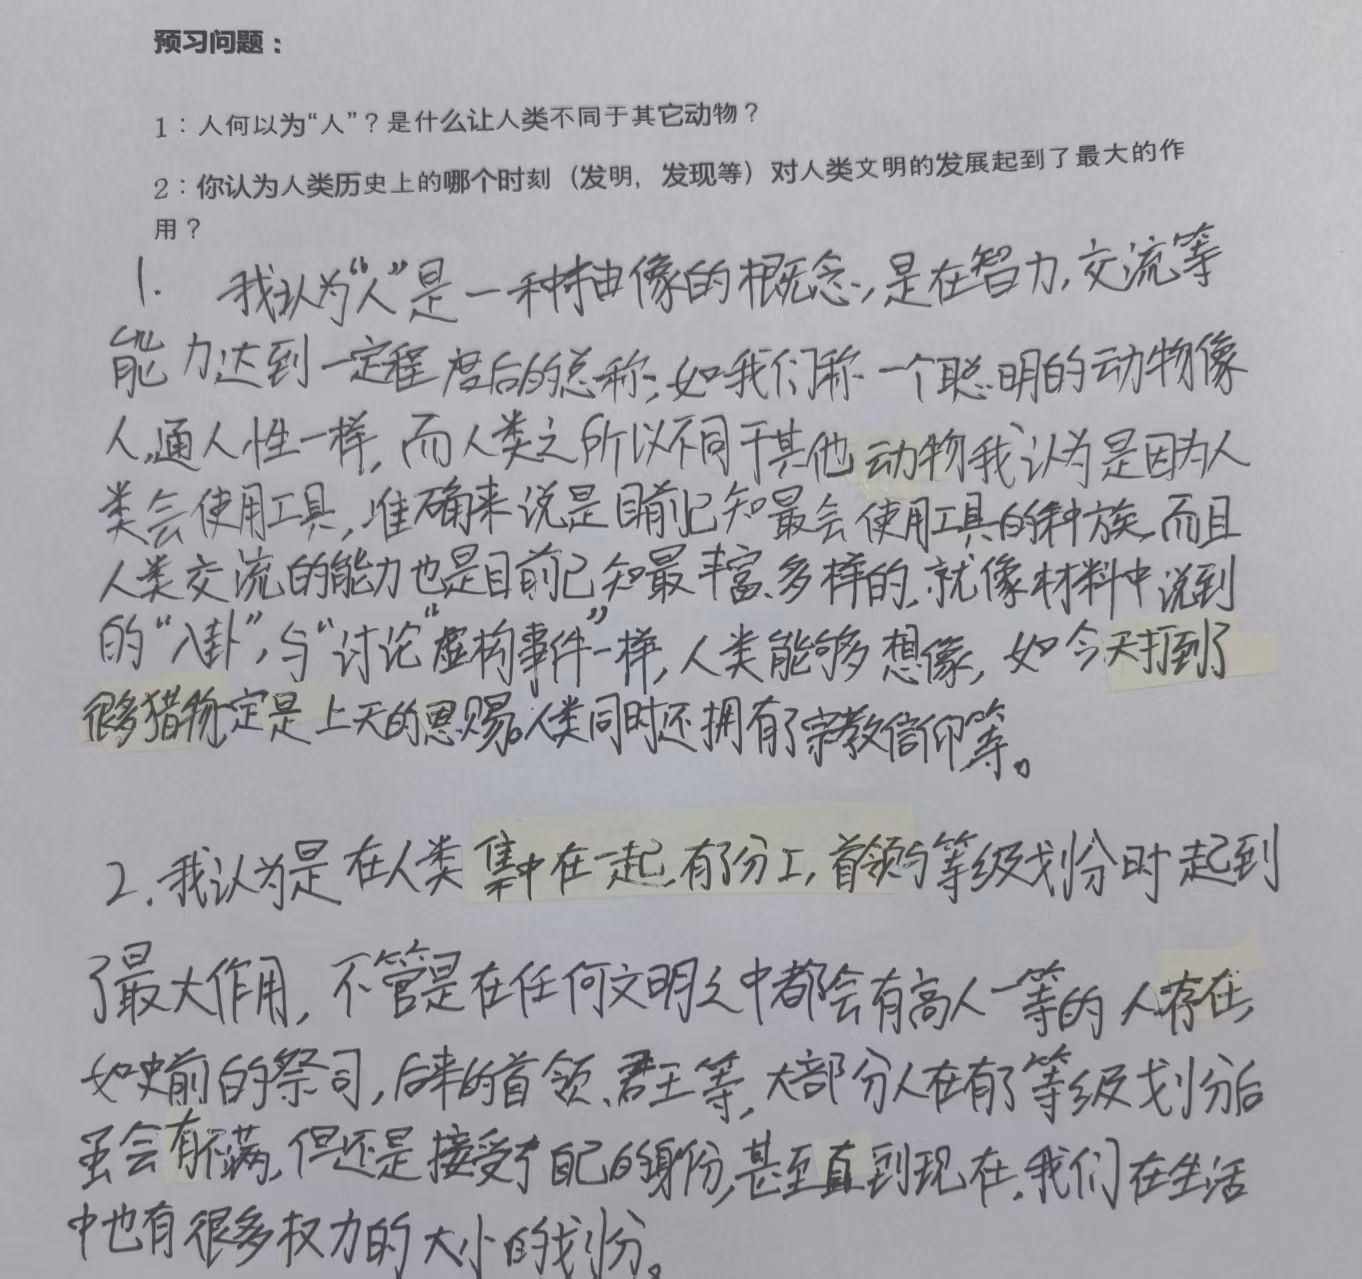 预习问题：
1：人何以为“人”？是什么让人类不同于其它动物？
2：你认为人类历史上的哪个时刻（发明，发现等）对人类文明的发展起到了最大的作
用？
1. 我认为“人”是一种抽像的概念，是在智力，交流等
能力达到一定程度后的总称，如我们称一个聪明的动物像
人，通人性一样，而人类之所以不同于其他动物我认为是因为人
类会使用工具，准确来说是目前已知最会使用工具的种族，而且
人类交流的能力也是目前已知最丰富、多样的，就像材料中说到
的“八卦”，与“讨论“虚构事件”一样，人类能够想像，如今天打到了
很多猎物一定是上天的恩赐。人类同时还拥有了宗教信仰等。
2. 我认为是在人类集中在一起，有了分工，首领与等级划分时起到
了最大作用，不管是在任何文明之中都会有高人一等的人存在，
如史前的祭司，后来的首领、君王等，大部分人在有了等级划分后
虽会有不满，但还是接受了自己的身份，甚至直到现在，我们在生活
中也有很多权力的大小的划分。